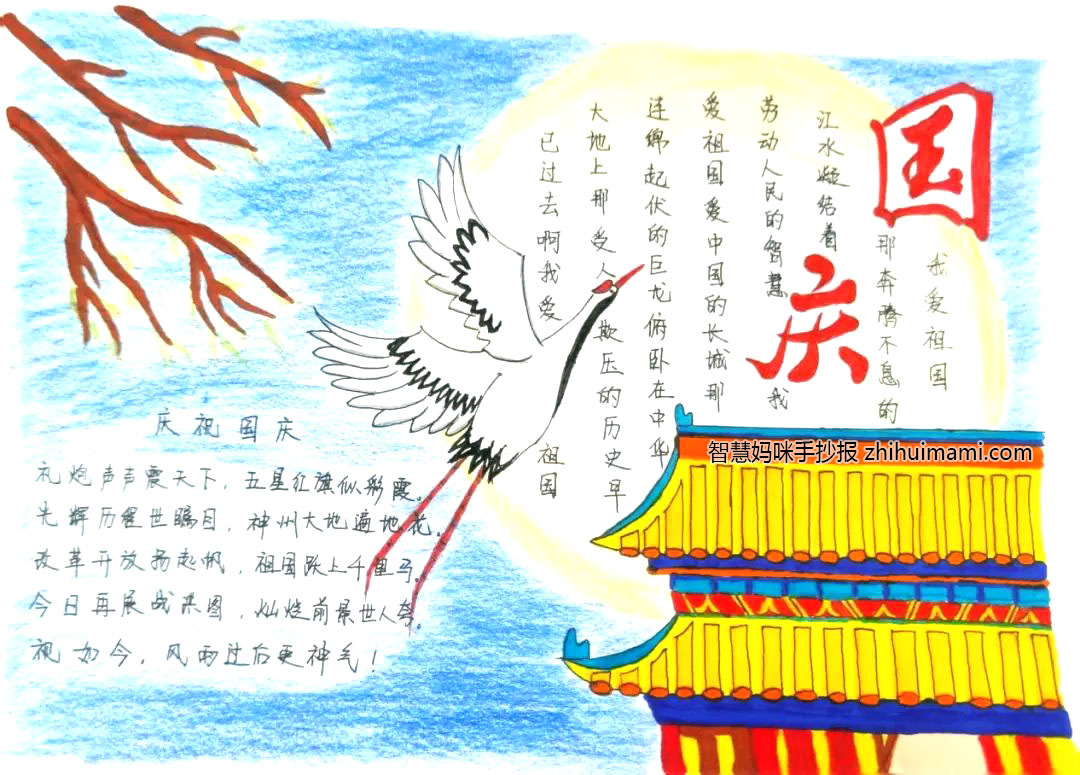 国
庆
我爱祖国
那奔腾不息的
江水凝结着
劳动人民的智慧 我
爱祖国爱中国的长城那
连绵起伏的巨龙俯卧在中华
大地上那受人欺压的历史早
已过去啊我爱 祖国
庆祝国庆
礼炮声声震天下，五星红旗似彩霞。
光辉历程世瞩目，神州大地遍地花。
改革开放扬起帆，祖国跃上千里马。
今日再展战果图，灿烂前景世人夸。
视如今，风雨过后更神气！
智慧妈咪手抄报 zhihuimami.com